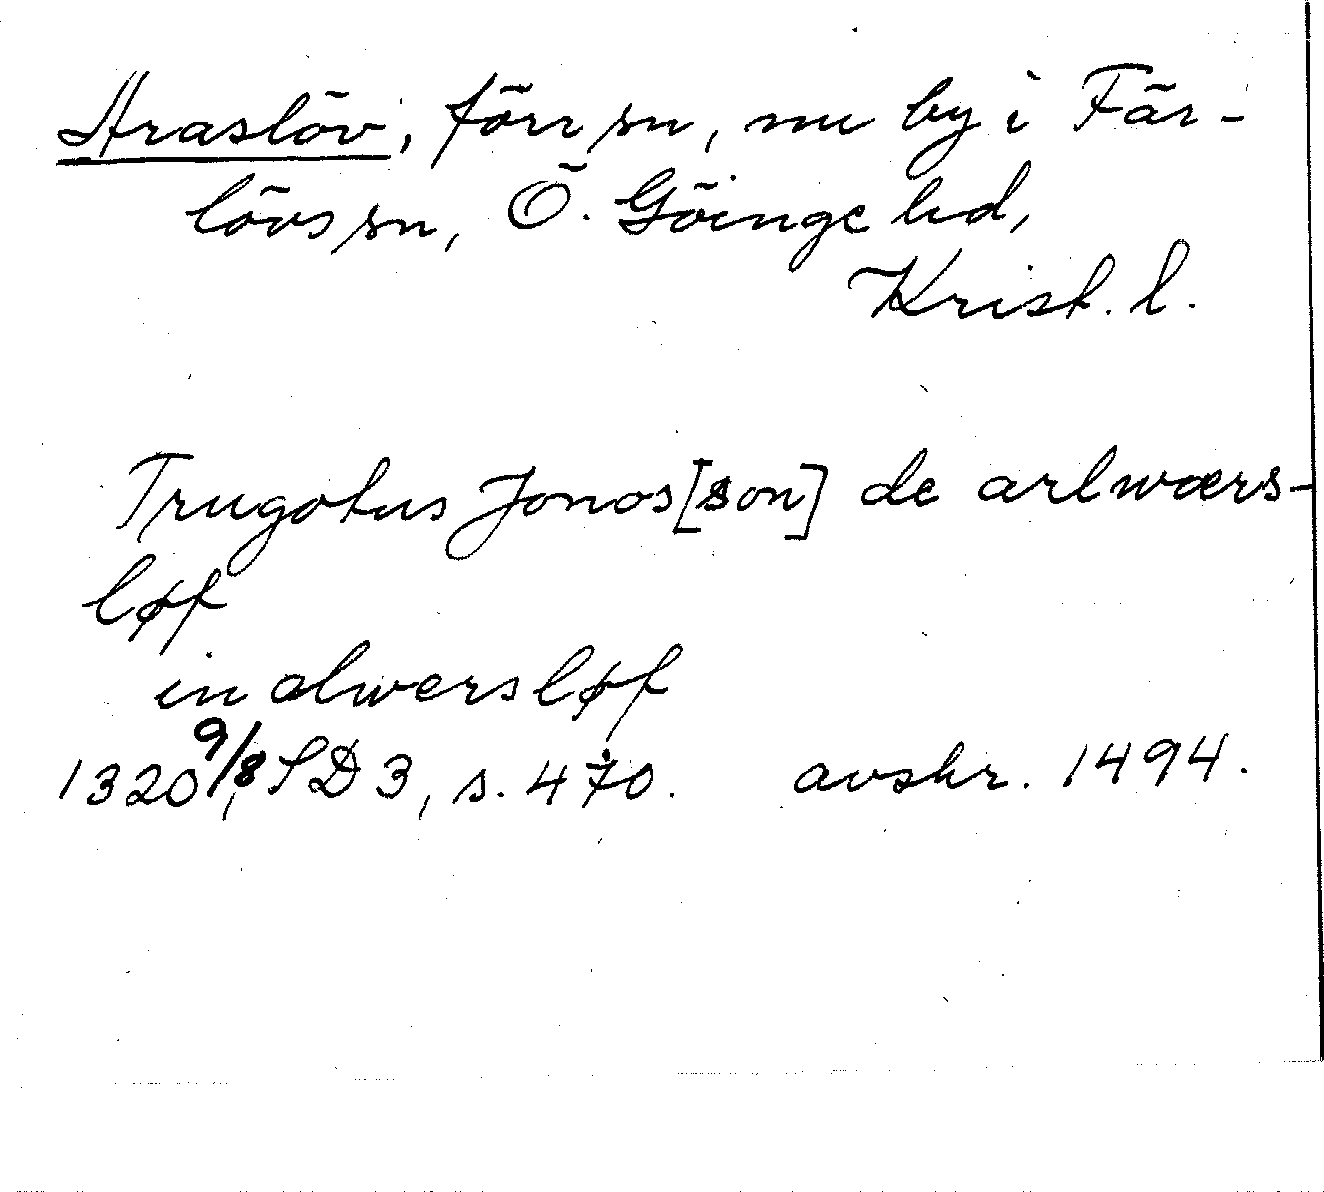 Araslöv, förr sn, nu by i Fär-
lövs sn, Ö. Göinge hd,
Krist. l.
Trugotus Jonos[son] de arlwærs-
løf
in alwersløf
1320 9/8, SD 3, s. 470. avskr. 1494.